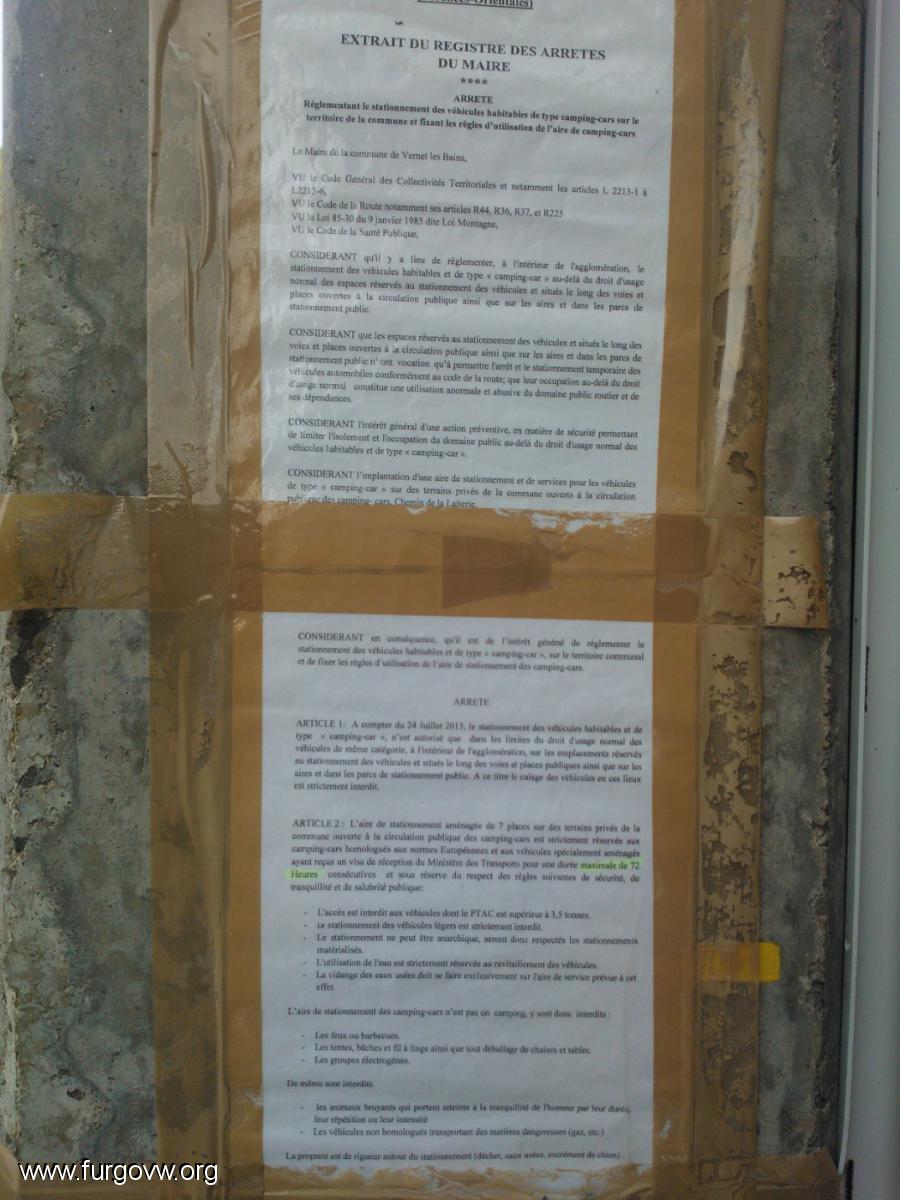 EXTRAIT DU REGISTRE DES ARRETES
DU MAIRE
****
ARRETE
Règlementant le stationnement des véhicules habitables de type camping-cars sur le
territoire de la commune et fixant les règles d'utilisation de l'aire de camping-cars
Le Maire de la commune de Vernet les Bains,
VU le Code Général des Collectivités Territoriales et notamment les articles L 2213-1 à
L2213-6,
VU le Code de la Route notamment ses articles R44, R36, R37, et R225
VU la Loi 85-30 du 9 janvier 1985 dite Loi Montagne,
VU le Code de la Santé Publique,
CONSIDERANT qu'il y a lieu de règlementer, à l'intérieur de l'agglomération, le
stationnement des véhicules habitables et de type « camping-car » au-delà du droit d'usage
normal des espaces réservés au stationnement des véhicules et situés le long des voies et
places ouvertes à la circulation publique ainsi que sur les aires et dans les parcs de
stationnement public.
CONSIDERANT que les espaces réservés au stationnement des véhicules et situés le long des
voies et places ouvertes à la circulation publique ainsi que sur les aires et dans les parcs de
stationnement public n' ont vocation qu'à permettre l'arrêt et le stationnement temporaire des
véhicules automobiles conformément au code de la route; que leur occupation au-delà du droit
d'usage normal constitue une utilisation anormale et abusive du domaine public routier et de
ses dépendances.
CONSIDERANT l'intérêt général d'une action préventive, en matière de sécurité permettant
de limiter l'isolement et l'occupation du domaine public au-delà du droit d'usage normal des
véhicules habitables et de type « camping-car ».
CONSIDERANT l'implantation d'une aire de stationnement et de services pour les véhicules
de type « camping-car » sur des terrains privés de la commune ouverts à la circulation
publique des camping- cars, Chemin de la Laiterie.
CONSIDERANT en conséquence, qu'il est de l'intérêt général de réglementer le
stationnement des véhicules habitables et de type « camping-car », sur le territoire communal
et de fixer les règles d'utilisation de l'aire de stationnement des camping-cars.
ARRETE
ARTICLE 1: A compter du 24 Juillet 2013, le stationnement des véhicules habitables et de
type « camping-car », n'est autorisé que dans les limites du droit d'usage normal des
véhicules de même catégorie, à l'intérieur de l'agglomération, sur les emplacements réservés
au stationnement des véhicules et situés le long des voies et places publiques ainsi que sur les
aires et dans les parcs de stationnement public. A ce titre le calage des véhicules en ces lieux
est strictement interdit.
ARTICLE 2 : L'aire de stationnement aménagée de 7 places sur des terrains privés de la
commune ouverte à la circulation publique des camping-cars est strictement réservée aux
camping-cars homologués aux normes Européennes et aux véhicules spécialement aménagés
ayant reçus un visa de réception du Ministère des Transports pour une durée maximale de 72
Heures consécutives et sous réserve du respect des règles suivantes de sécurité, de
tranquillité et de salubrité publique:
- L'accès est interdit aux véhicules dont le PTAC est supérieur à 3,5 tonnes.
- Le stationnement des véhicules légers est strictement interdit.
- Le stationnement ne peut être anarchique, seront donc respectés les stationnements
matérialisés.
- L'utilisation de l'eau est strictement réservée au ravitaillement des véhicules.
- La vidange des eaux usées doit se faire exclusivement sur l'aire de service prévue à cet
effet.
L'aire de stationnement des camping-cars n'est pas un camping, y sont donc interdits :
- Les feux ou barbecues.
- Les tentes, bâches et fil à linge ainsi que tout déballage de chaises et tables.
- Les groupes électrogènes.
De même sont interdits
- les animaux bruyants qui portent atteinte à la tranquillité de l'homme par leur durée,
leur répétition ou leur intensité
- Les véhicules non homologués transportant des matières dangereuses (gaz, etc.)
La propreté est de rigueur autour du stationnement (déchet, eaux usées, excrément de chien)
www.furgovw.org